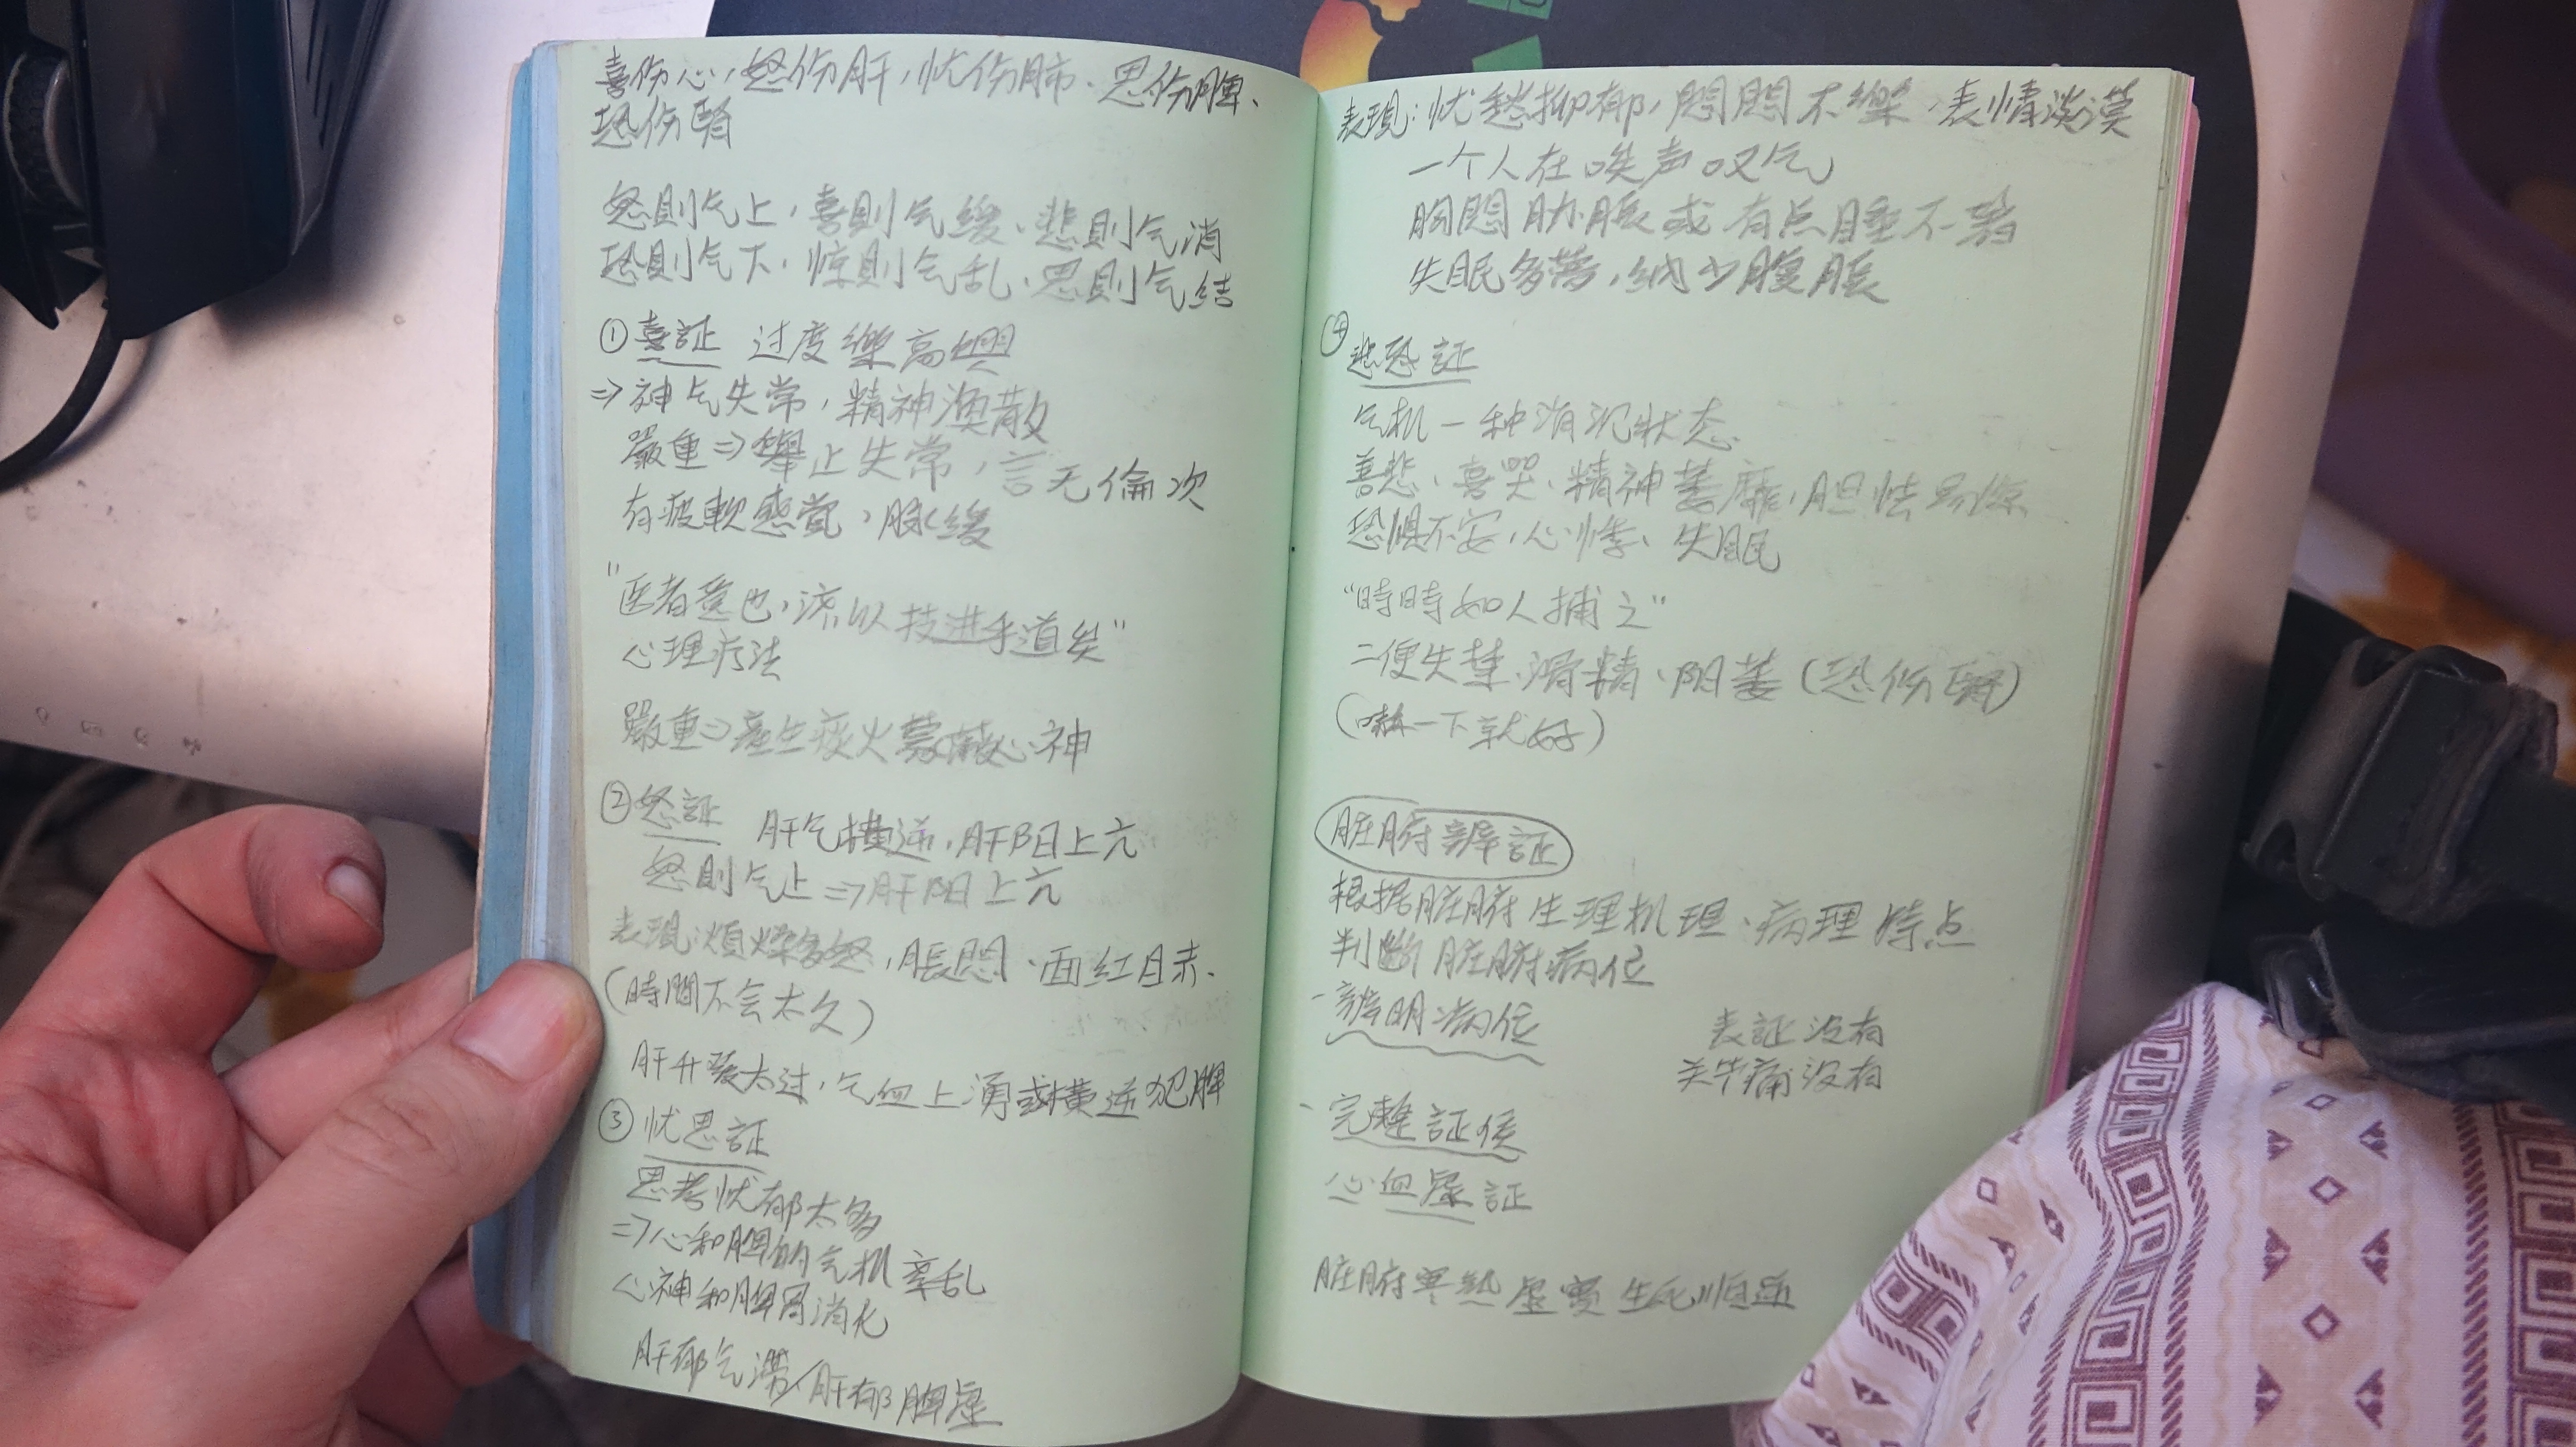 喜伤心，怒伤肝，忧伤肺、思伤脾、
恐伤腎
怒則气上，喜則气緩、悲則气消
恐則气下，惊則气乱、思則气结
① 喜証 过度樂高興
⇒ 神气失常，精神渙散
嚴重⇒舉止失常，言无倫次
有疲軟感覚，脉緩
"医者意也，流以技进乎道矣"
心理疗法
嚴重⇒產生痰火蒙蔽心神
② 怒証 肝气横逆，肝阳上亢
怒則气上⇒肝阳上亢
表現：煩燥多怒，脹悶、面红目赤、
(時間不会太久)
肝升發太过，气血上湧或横逆犯脾
③ 忧思証
思考忧郁太多
⇒心和脾的气机紊乱
心神和脾胃消化
肝郁气滯/肝郁脾虛
表現：忧愁抑郁，悶悶不樂，表情淡漠
一个人在唉声叹气
胸悶胁脹或有点睡不着
失眠多夢，纳少腹脹
④
悲恐証
气机一种消沉状态
善悲、喜哭、精神萎靡，胆怯易惊
恐惧不安，心悸、失眠
"時時如人捕之"
二便失禁、滑精、阳萎(恐伤腎)
(嚇一下就好)
脏腑辨証
根据脏腑生理机理、病理特点
判断脏腑病位
-辨明病位 表証没有
关节痛没有
-完整証候
心血虛証
脏腑寒熱虛實生死順逆